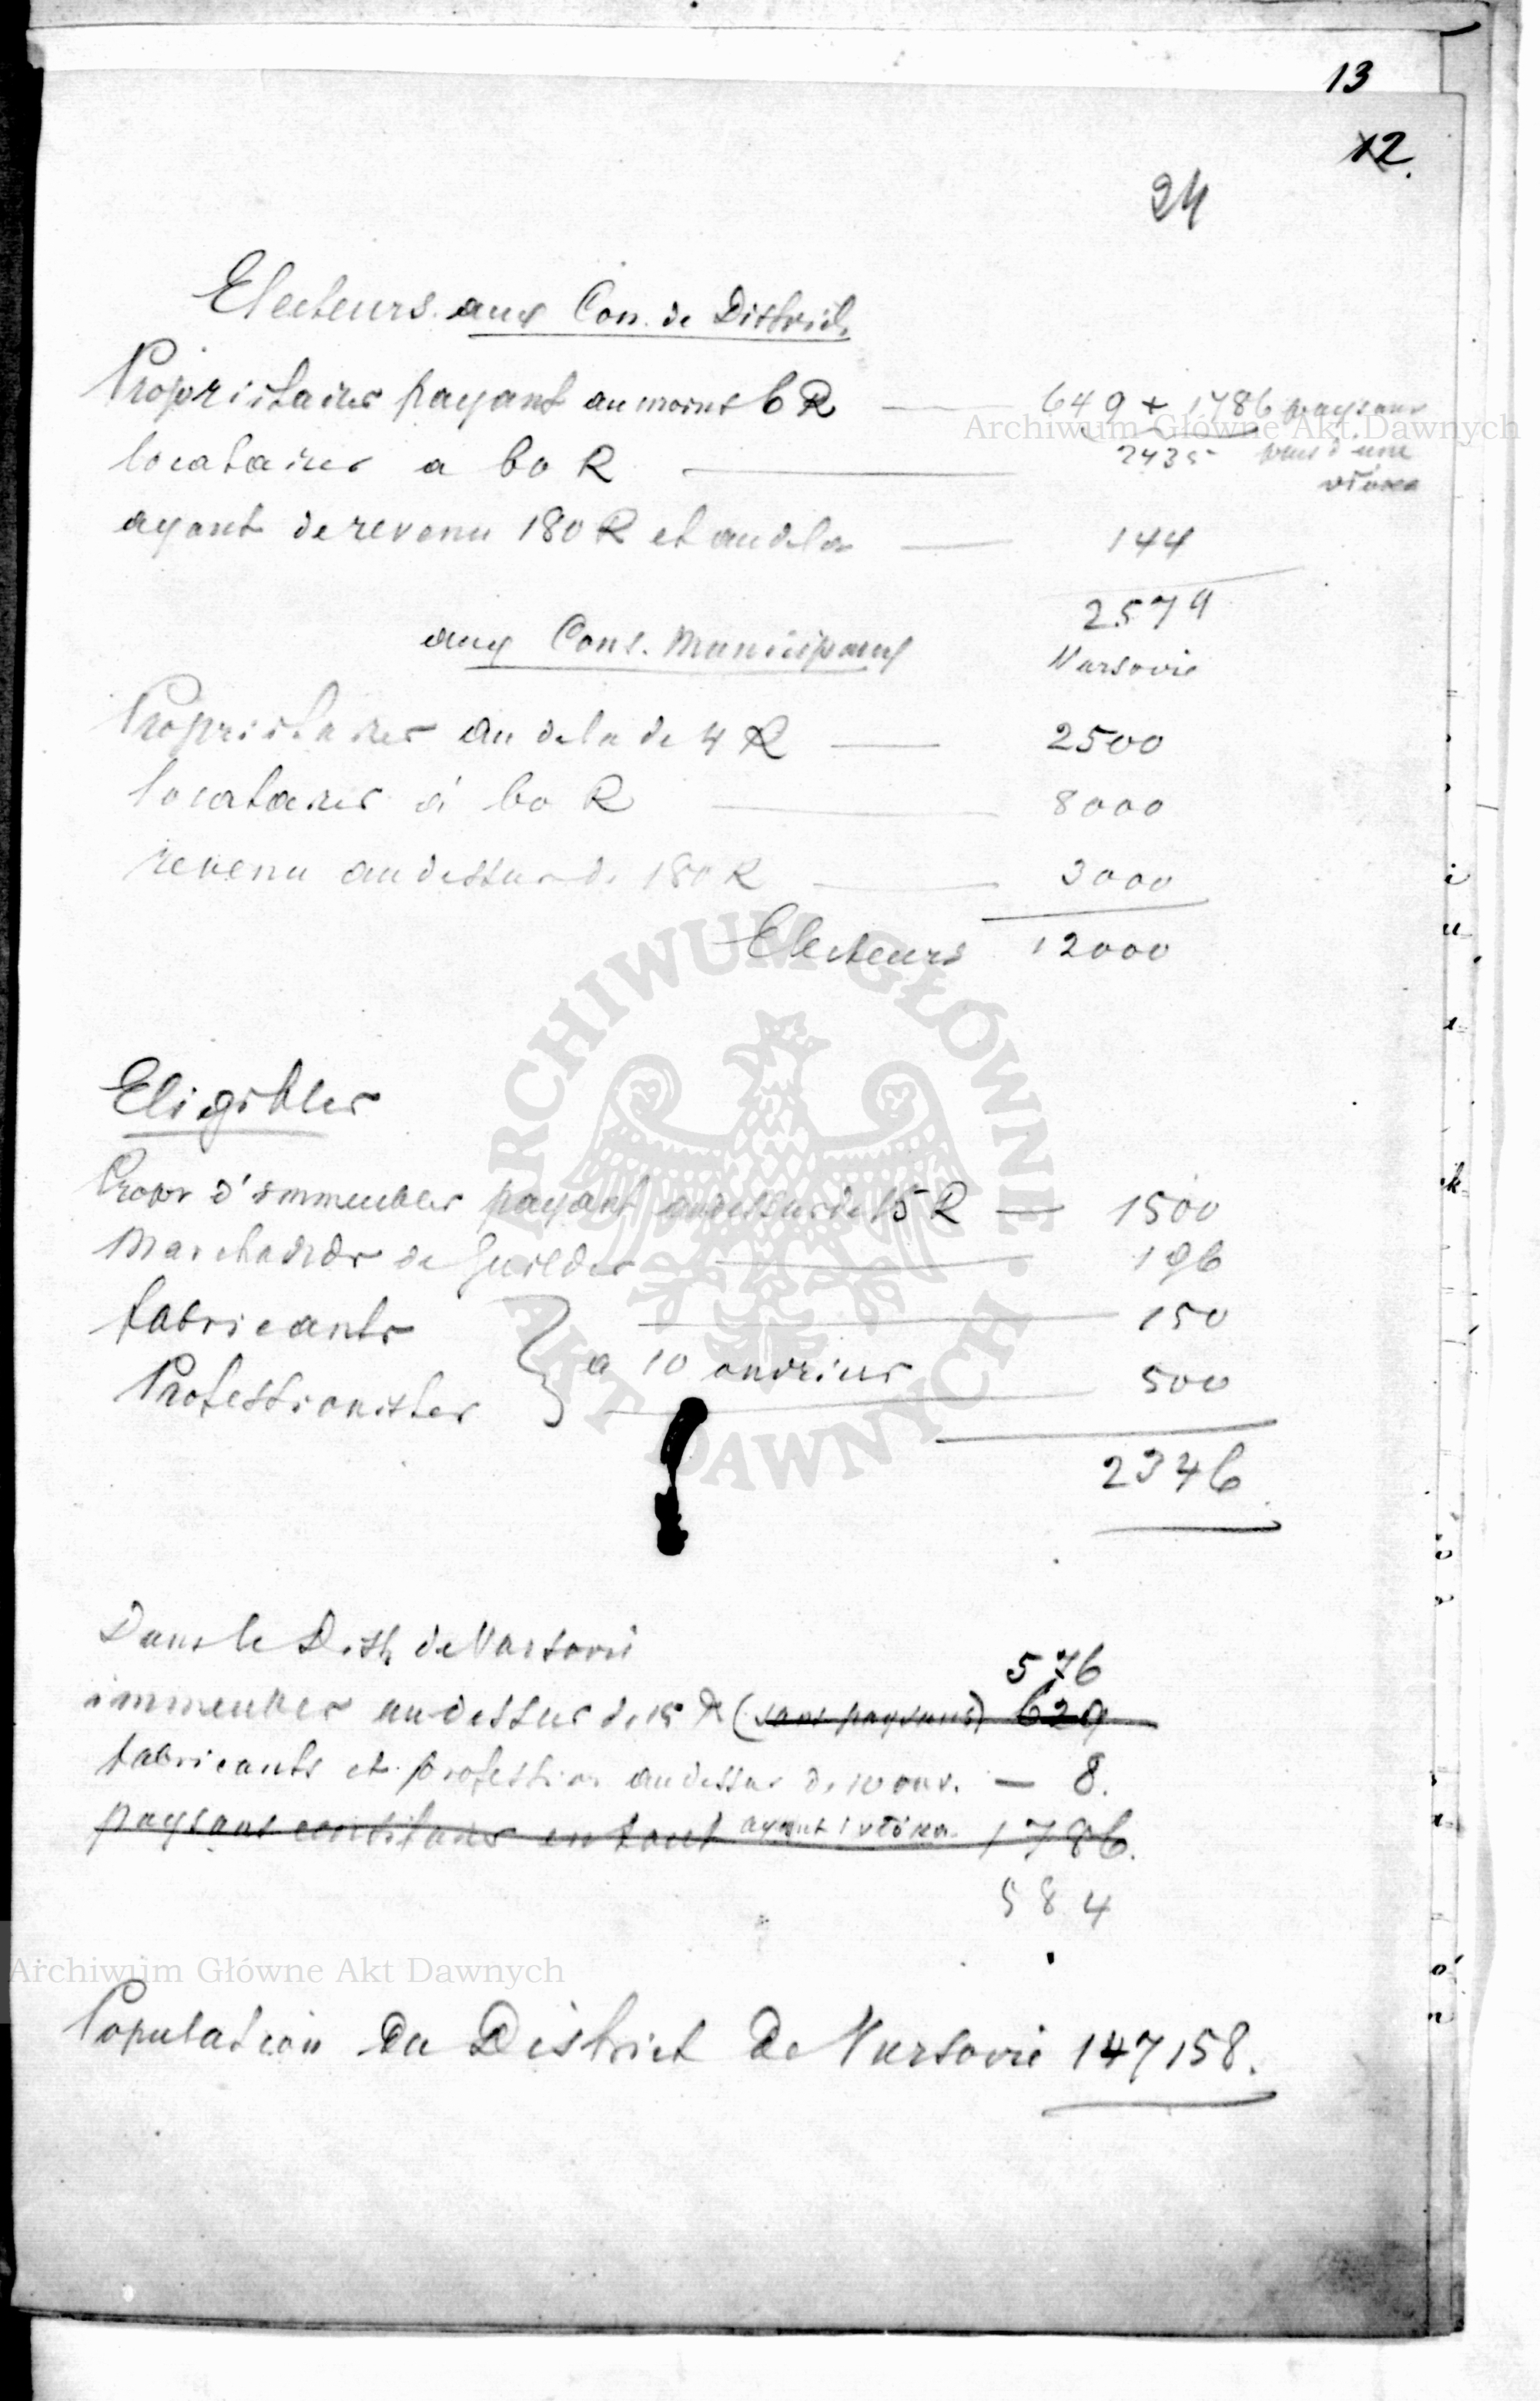 13
12.
24
Electeurs aux Con. de District
Propriétaires payant au moins 6 R — 649 + 1786 paysans
locataires a 60 R — 2435 plus d'une
włóka
ayant de revenu 180 R et audela — 144
2579
aux Cons. Municipaux Varsovie
Propriétaires au dela de 4 R — 2500
locataires à 60 R — 8000
revenu au dessus de 180 R — 3000
Electeurs 12000
Eligibles
Propr d'immeubles payant au dessus de 15 R — 1500
Marchands de Guildes — 196
fabricants — 150
} a 10 ouvriers
Professionistes — 500
2346
Dans le Distr de Varsovie
576
immeubles au dessus de 15 R (sans paysans) 629
fabricants et profession au dessus de 10 ouv. — 8.
paysans en tout ayant 1 włóka 1786.
584
Population du District de Varsovie 147158.
Archiwum Główne Akt Dawnych
Archiwum Główne Akt Dawnych
ARCHIWUM GŁÓWNE AKT DAWNYCH